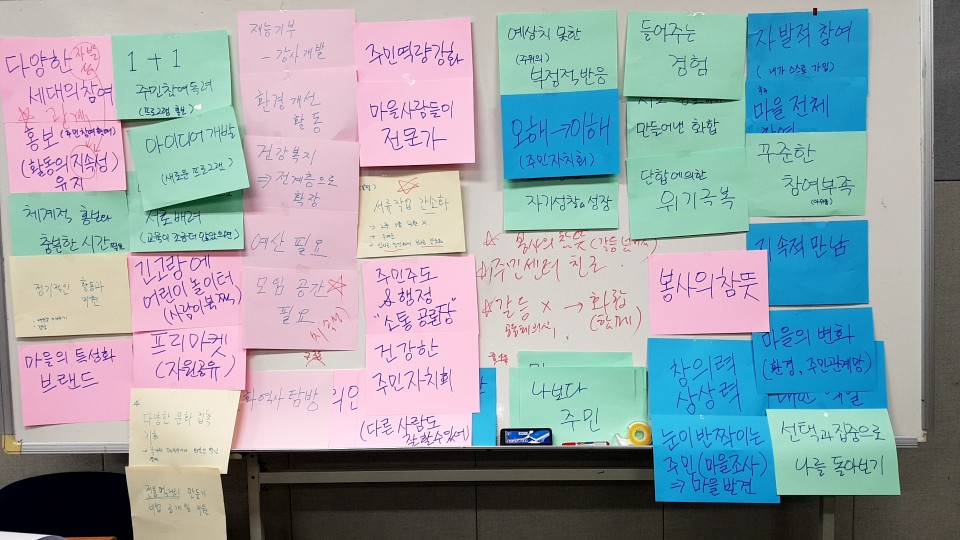 다양한
세대의 참여
홍보 (주민참여확대)
(활동의 지속성)
유지
체계적 홍보와
충분한 시간 필요
정기적인 활동과
마을의 특성화
브랜드
1 + 1
주민참여독려
(프로그램 홍보)
아이디어 개발
(새로운 프로그램)
서로 배려
긴고랑에
어린이 놀이터
(사람이 북쩍)
프리마켓
(자원공유)
다양한 문화 접촉
기회
전통먹거리 만들기
재능기부
- 강사개발
환경개선
활동
건강복지
⇒ 전계층으로
확장
예산 필요
모임 공간
필요
역사 탐방
주민역량강화
마을사람들이
전문가
서류작업 간소화
주민주도
& 행정
"소통 공론장"
건강한
주민자치회
(다른 사람도
잘 할 수 있어)
예상치 못한
(주위의)
부정적 반응
오해 → 이해
(주민자치회)
자기성찰 & 성장
봉사의 참뜻
주민센터 친근
갈등 × → 화합
(함께)
나보다
주민
들어주는
경험
만들어낸 화합
단합에 의한
위기극복
봉사의 참뜻
창의력
상상력
눈이 반짝이는
주민 (마을조사)
⇒ 마을 발견
자발적 참여
(내가 스스로 가입)
마을 전체
꾸준한
참여부족
지속적 만남
마을의 변화
(환경, 주민관계망)
선택과 집중으로
나를 돌아보기